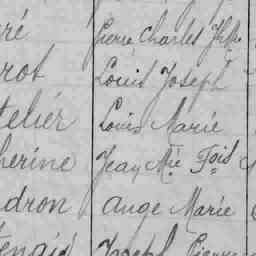 ré Pierre Charles
rot Louis Joseph
telier Louis Marie
herine Jean Mie Fois
dron Ange Marie
Joseph Pierre